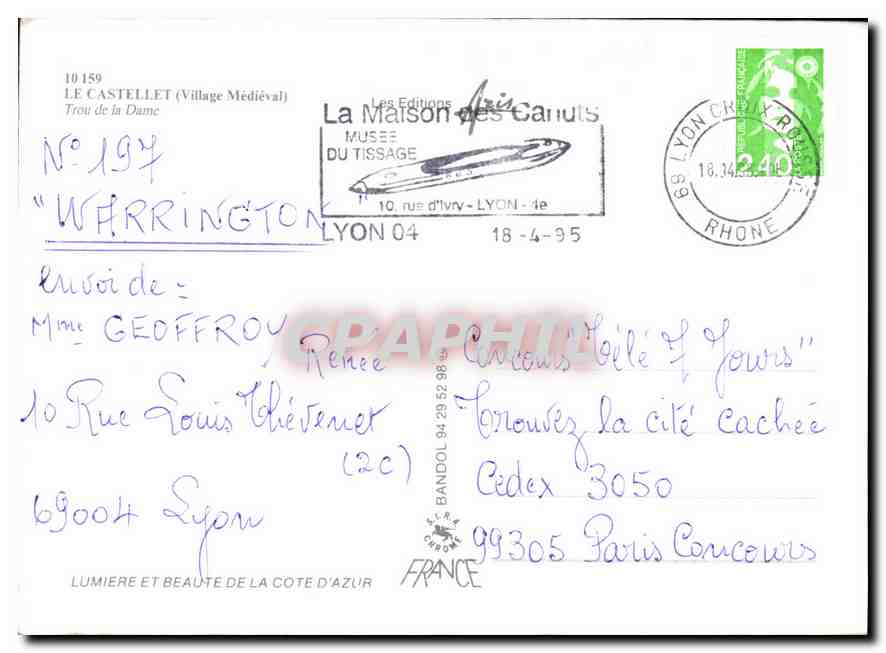 10 159
LE CASTELLET (Village Médiéval)
Trou de la Dame
Les Editions Aris
La Maison des Canuts
MUSEE
DU TISSAGE
10, rue d'Ivry - LYON - 4e
LYON 04 18-4-95
69 LYON CROIX ROUSSE
18.04.95
RHONE
REPUBLIQUE FRANÇAISE
2,40
N° 197
"WARRINGTON
envoi de =
Mme GEOFFROY
Renée
10 Rue Louis Thévenet
(2C)
69004 Lyon
Concours "Télé 7 Jours"
Trouvez la cité cachée
Cédex 3050
99305 Paris Concours
BANDOL 94 29 52 98
S.I.R.A
CHROME
FRANCE
LUMIERE ET BEAUTE DE LA COTE D'AZUR
CPAPHIL